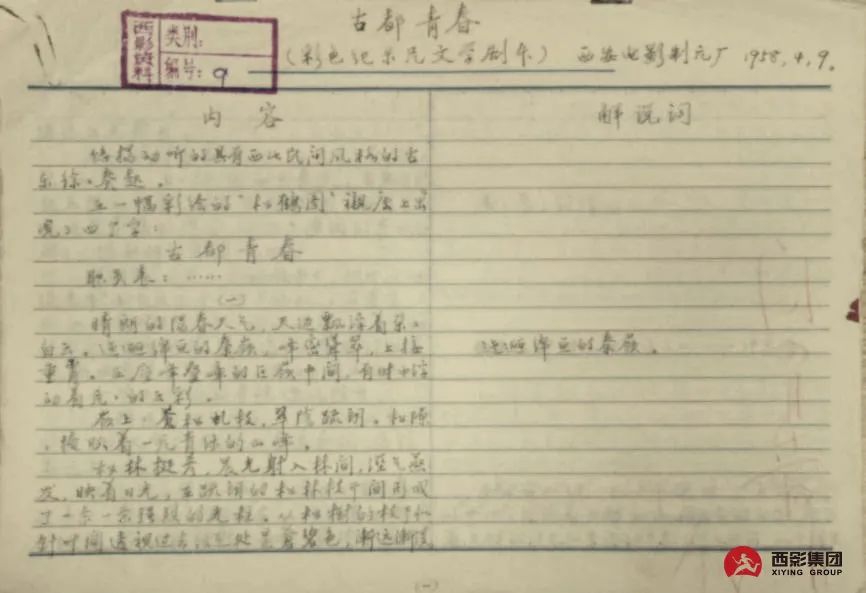 古都青春
西影资料
类别:
编号: 9
(彩色纪录片文学剧本) 西安电影制片厂 1958.4.9.
内容
解说词
悠扬动听的具有西北民间风格的音
乐徐々奏起。
在一幅彩绘的“松鹤图”衬底上出
现了四个字:
古都青春
职员表:……
(一)
晴朗的阳春天气,天边飘浮着朵々
白云。迤逦绵亘的秦岭,峰峦叠翠,上接
重霄。在层峰叠峰的巨岭中间,有时浮
动着片々的云彩。
迤逦绵亘的秦岭。
岩上,苍松虬枝,翠荫疏朗。松隙
,掩映着一片青绿的山峰。
松林挺秀,晨光射入林间,湿气蒸
发,映着日光,在疏朗的松林枝干间形成
了一条一条强烈的光柱。从松树的枝干和
针叶间透视过去,远处是苍碧色,渐远渐淡
(一)
西影集团
XIYING GROUP